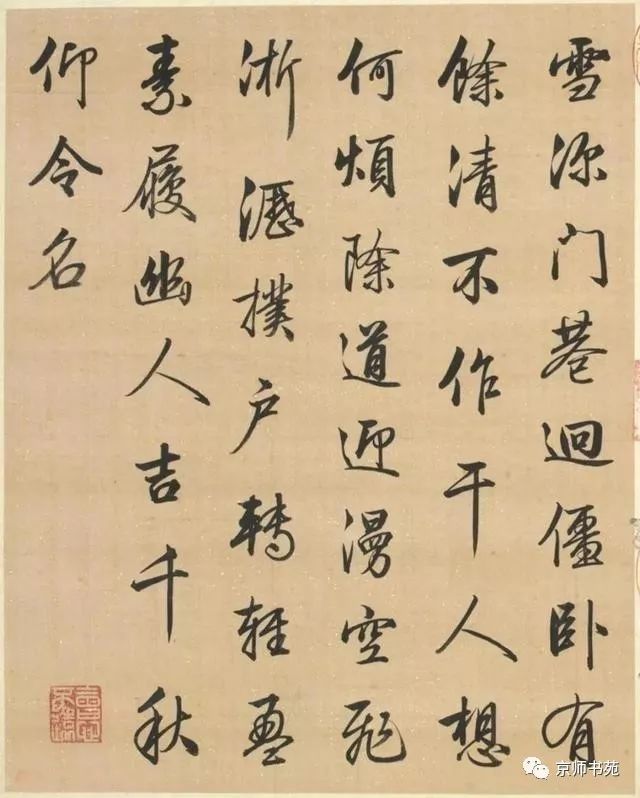 雪深门巷迥僵卧有
餘清不作干人想
何煩除道迎漫空飛
淅瀝撲户轉輕盈
素履幽人吉千秋
仰令名
京师书苑